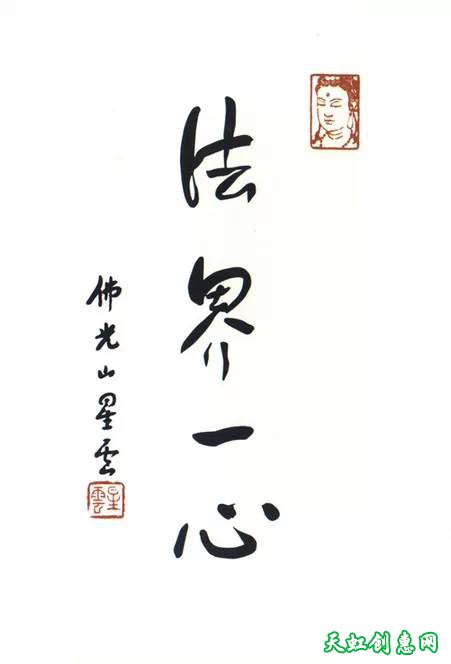 法界一心
佛光山星雲
星雲
天虹创惠网